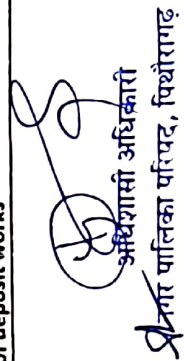 of deposit works
अधिशासी अधिकारी
नगर पालिका परिषद, पिथौरागढ़